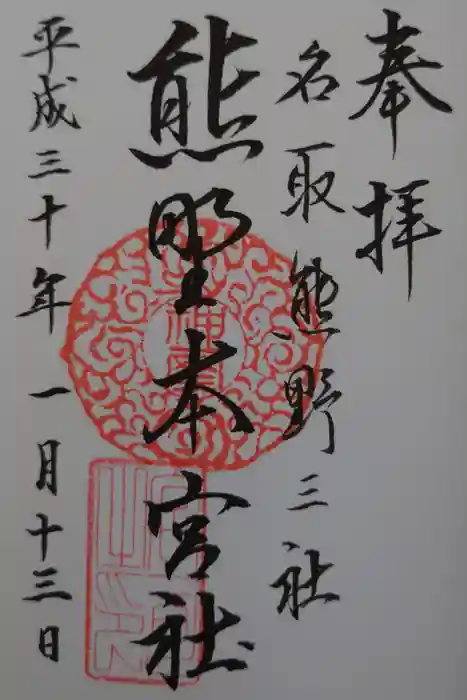 奉拝
名取熊野三社
熊野本宮社
平成三十年一月十三日